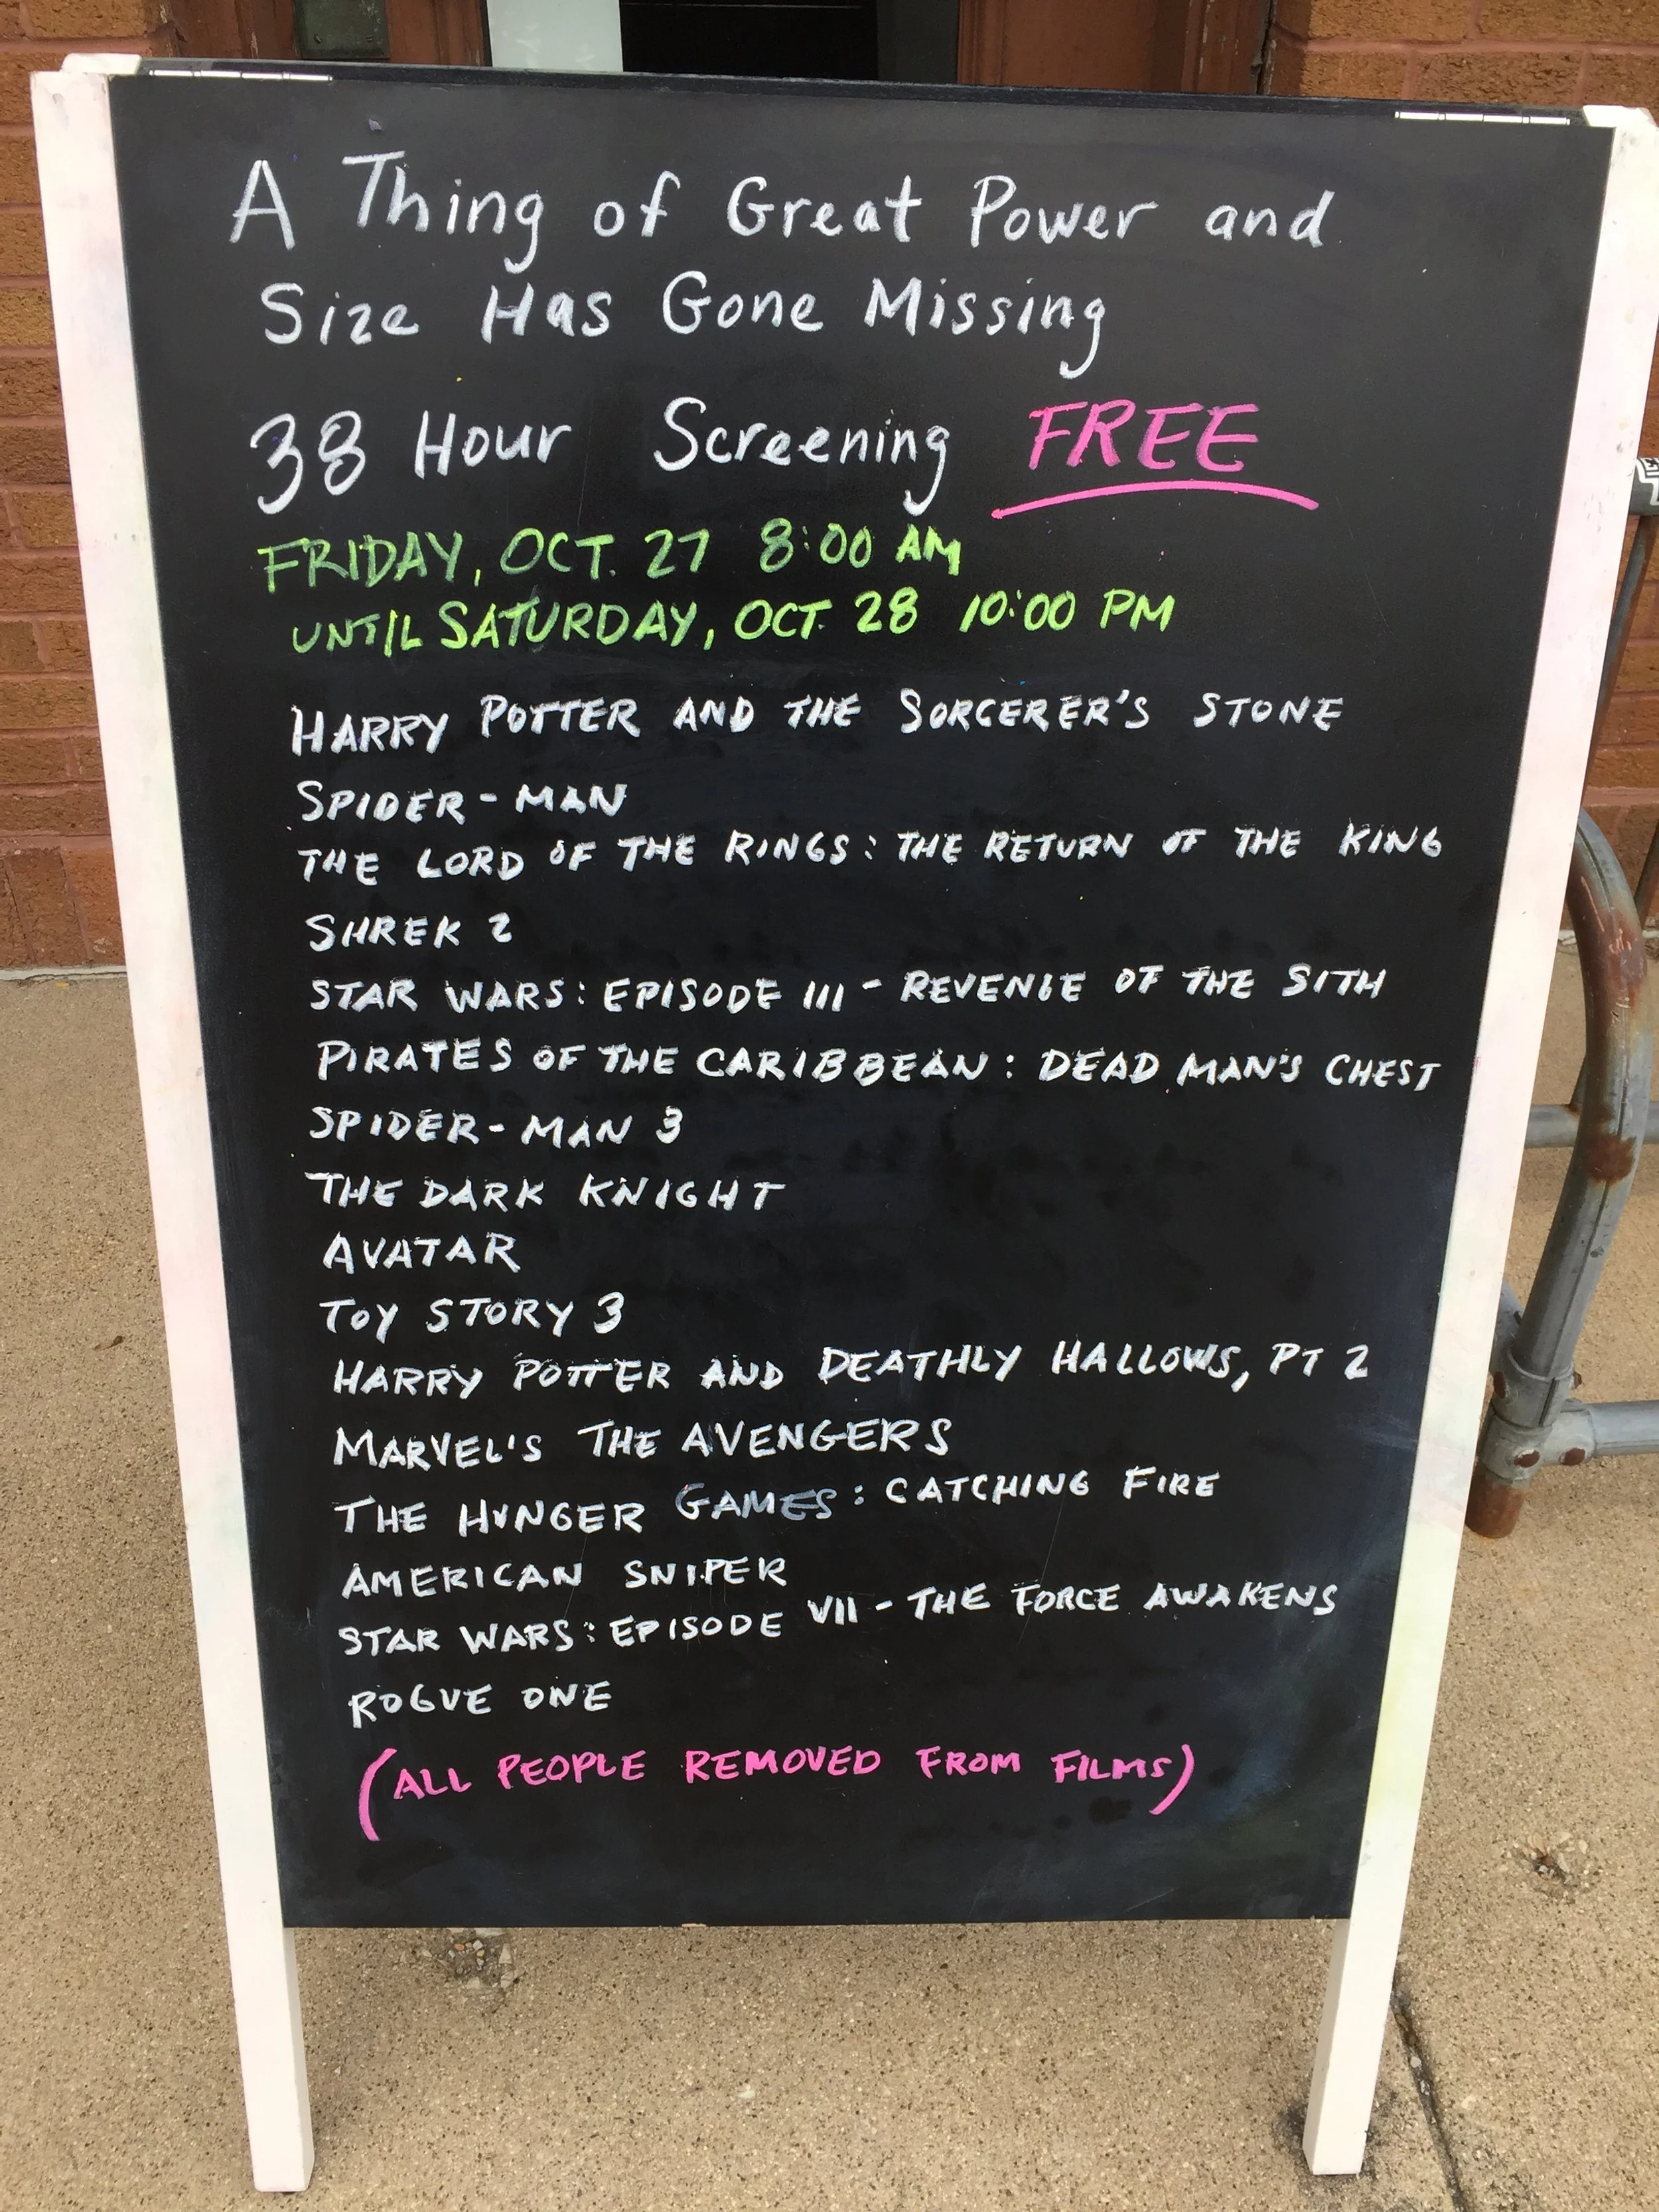 A Thing of Great Power and
Size Has Gone Missing
38 Hour Screening FREE
FRIDAY, OCT. 27 8:00 AM
UNTIL SATURDAY, OCT. 28 10:00 PM
HARRY POTTER AND THE SORCERER'S STONE
SPIDER-MAN
THE LORD OF THE RINGS: THE RETURN OF THE KING
SHREK 2
STAR WARS: EPISODE III - REVENGE OF THE SITH
PIRATES OF THE CARIBBEAN: DEAD MAN'S CHEST
SPIDER-MAN 3
THE DARK KNIGHT
AVATAR
TOY STORY 3
HARRY POTTER AND DEATHLY HALLOWS, PT 2
MARVEL'S THE AVENGERS
THE HUNGER GAMES: CATCHING FIRE
AMERICAN SNIPER
STAR WARS: EPISODE VII - THE FORCE AWAKENS
ROGUE ONE
(ALL PEOPLE REMOVED FROM FILMS)